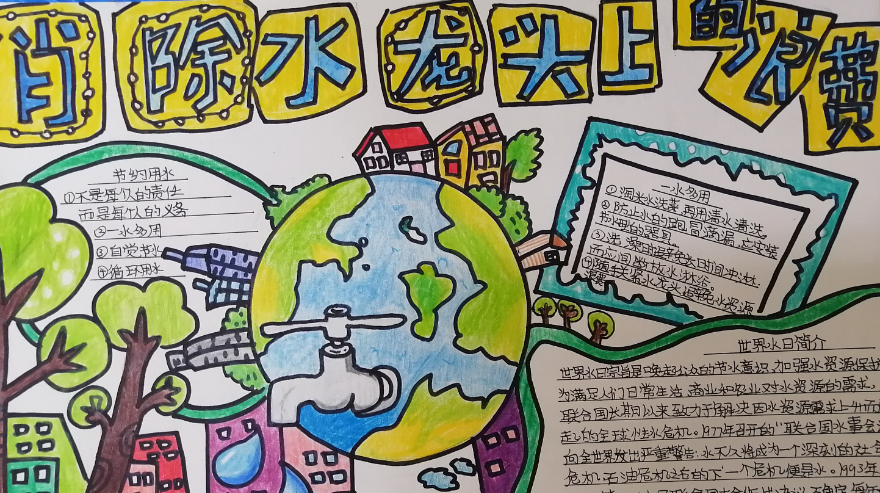 消除水龙头上的浪费
节约用水
①不是每似的责任
而是每似的义务
②一水多用
③自觉节水
④循环用水
二水多用
①淘米水洗菜,再用清水清洗
②防止水的跑冒滴漏,应安装
③洗澡时避免长时间冲淋
世界水日简介
世界水日宗旨是唤起公众的节水意识,加强水资源保护
为满足人们日常生活,商业和农业对水资源的需求,
联合国长期以来致力于解决因水资源需求上升而
走的全球性水危机。1977年召开的"联合国水事会
向全世界发出严重警告:水不久将成为一个深刻的社会
危机,石油危机之后的下一个危机便是水。1993年